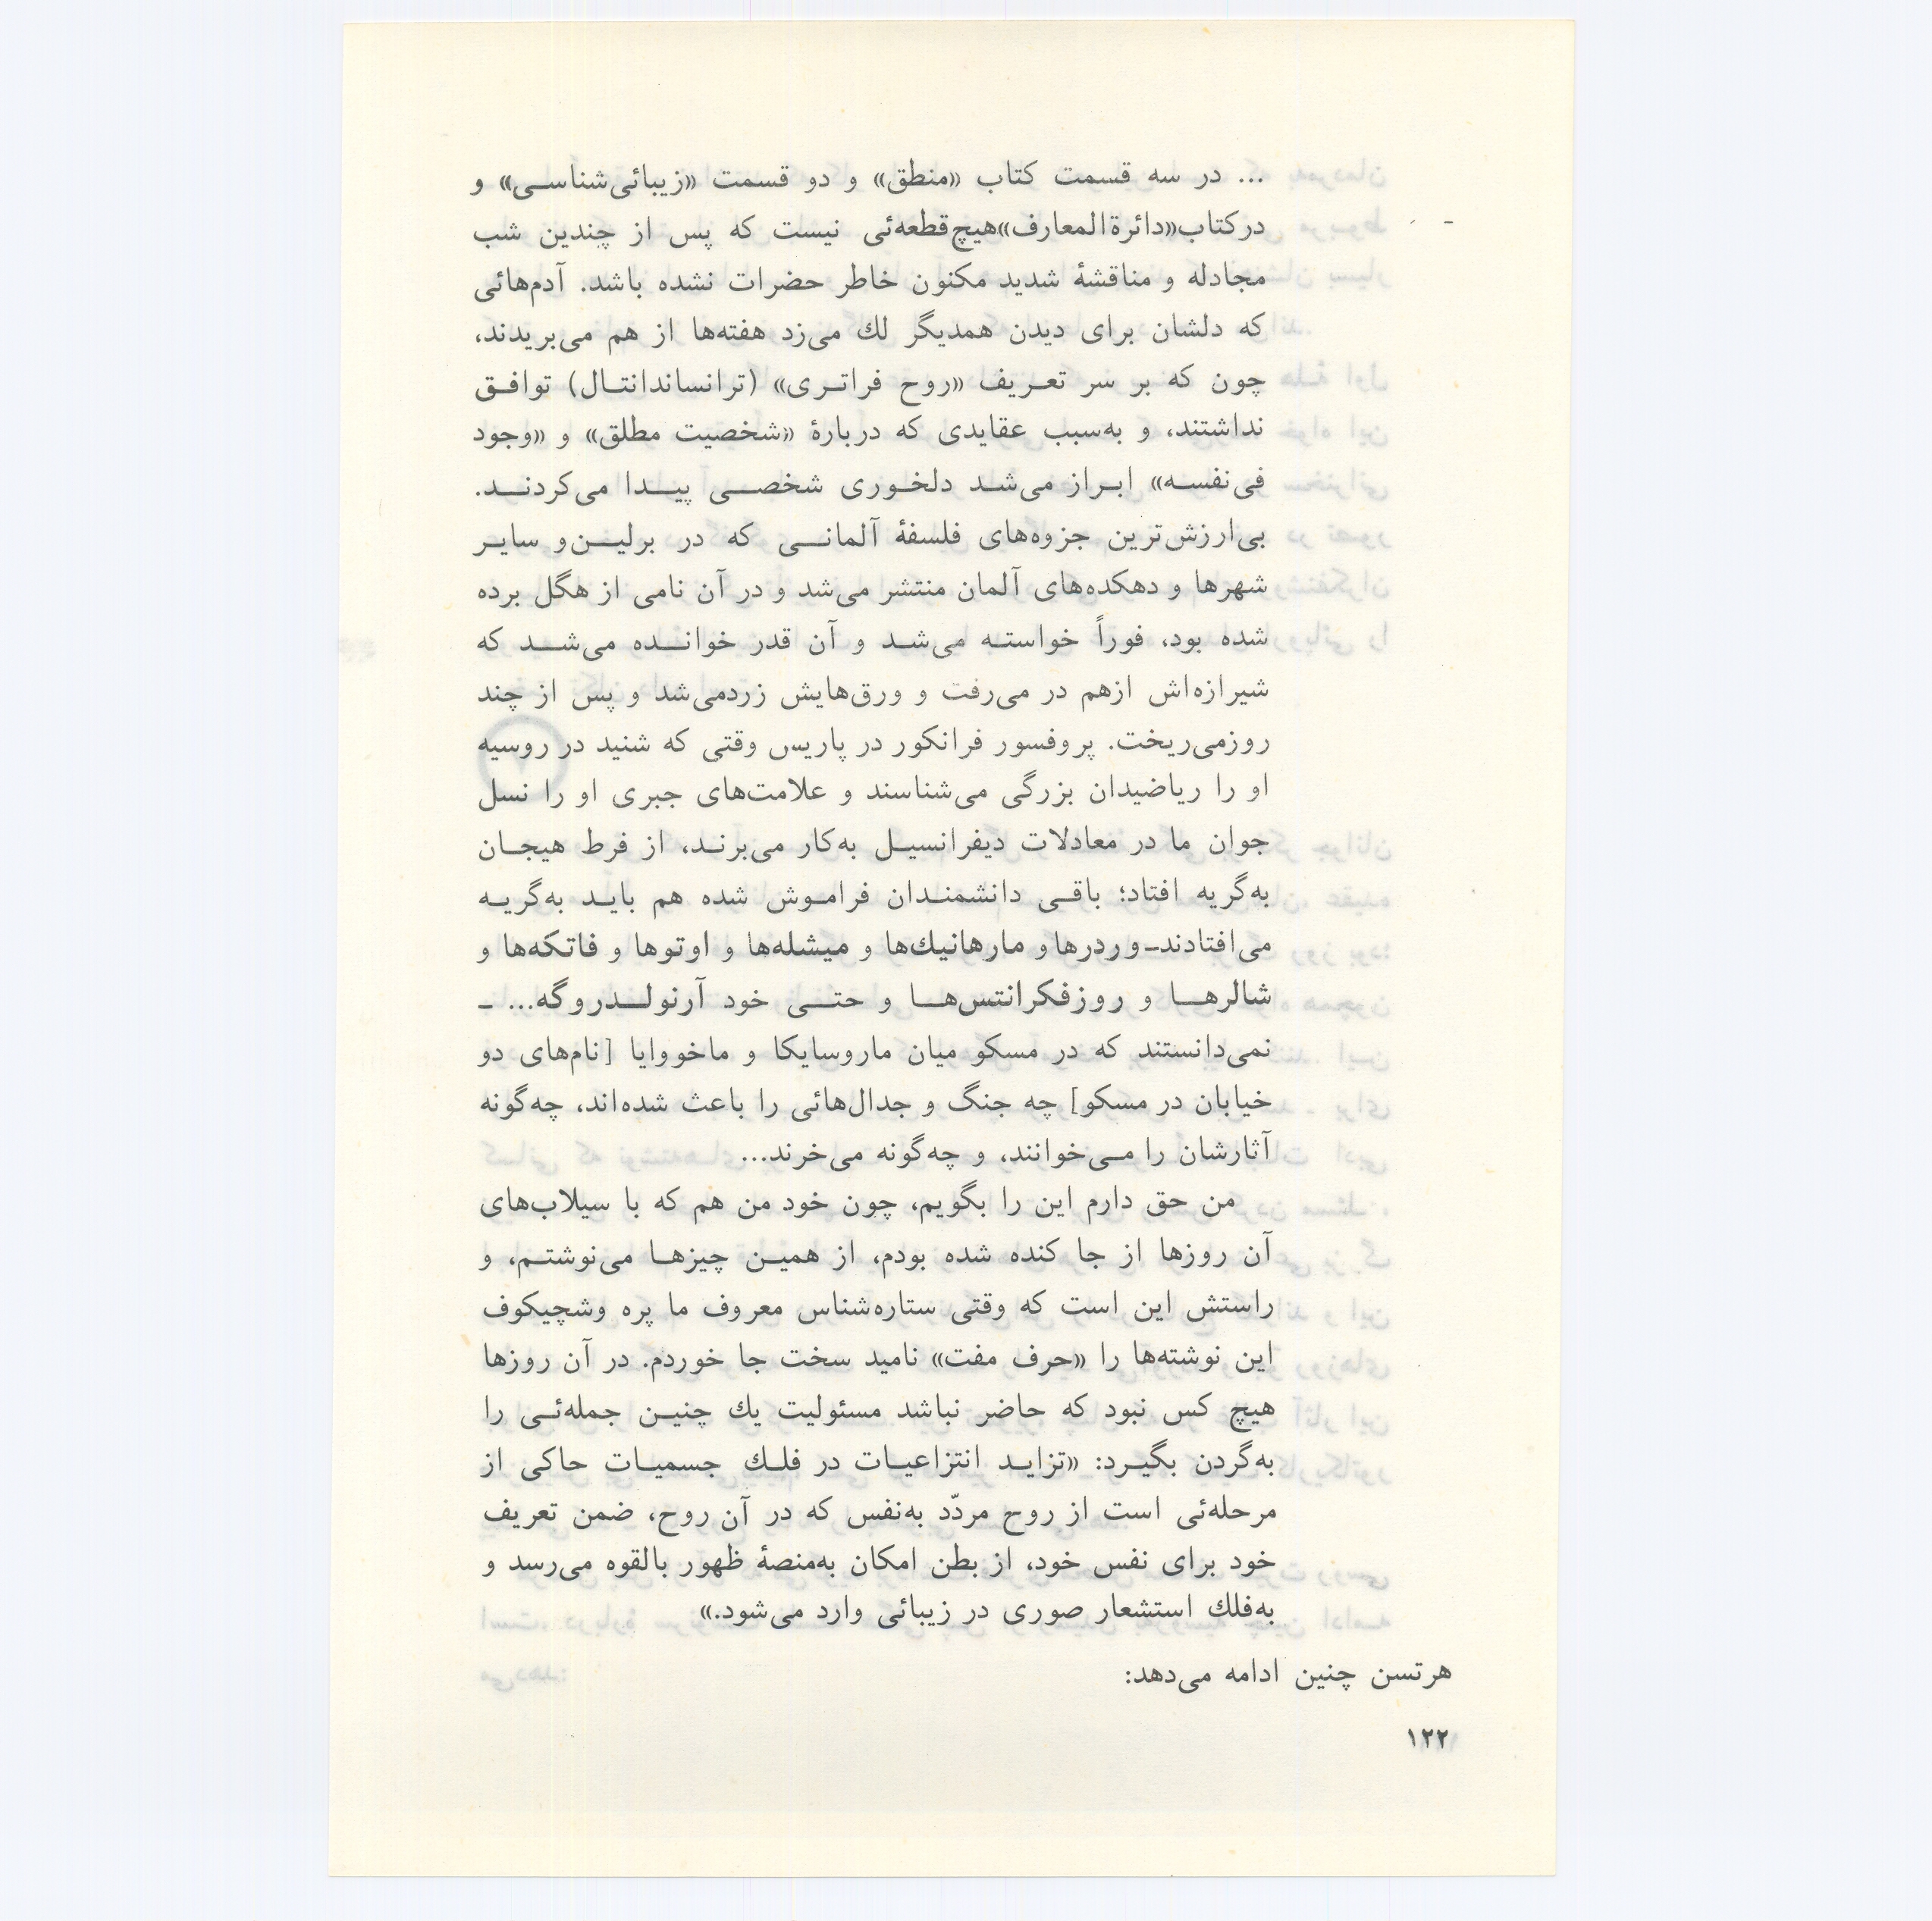 ... در سه قسمت کتاب «منطق» و دو قسمت «زیبائی‌شناسی» و
در کتاب «دائرةالمعارف» هیچ قطعه‌ئی نیست که پس از چندین شب
مجادله و مناقشهٔ شدید مکنون خاطر حضرات نشده باشد. آدم‌هائی
که دلشان برای دیدن همدیگر لك می‌زد هفته‌ها از هم می‌بریدند،
چون که بر سر تعریف «روح فراتری» (ترانساندانتال) توافق
نداشتند، و به‌سبب عقایدی که دربارهٔ «شخصیت مطلق» و «وجود
فی‌نفسه» ابراز می‌شد دلخوری شخصی پیدا می‌کردند.
بی‌ارزش‌ترین جزوه‌های فلسفهٔ آلمانی که در برلین و سایر
شهرها و دهکده‌های آلمان منتشر می‌شد و در آن نامی از هگل برده
شده بود، فوراً خواسته می‌شد و آن قدر خوانده می‌شد که
شیرازه‌اش ازهم در می‌رفت و ورق‌هایش زردمی‌شد و پس از چند
روزمی‌ریخت. پروفسور فرانکور در پاریس وقتی که شنید در روسیه
او را ریاضیدان بزرگی می‌شناسند و علامت‌های جبری او را نسل
جوان ما در معادلات دیفرانسیل به‌کار می‌برند، از فرط هیجان
به‌گریه افتاد؛ باقی دانشمندان فراموش شده هم باید به‌گریه
می‌افتادند ـ وردرها و مارهانیك‌ها و میشله‌ها و اوتوها و فاتکه‌ها و
شالرها و روزفکرانتس‌ها و حتی خود آرنولدروگه... ـ
نمی‌دانستند که در مسکو میان ماروسایکا و ماخووایا [نام‌های دو
خیابان در مسکو] چه جنگ و جدال‌هائی را باعث شده‌اند، چه‌گونه
آثارشان را می‌خوانند، و چه‌گونه می‌خرند...
من حق دارم این را بگویم، چون خود من هم که با سیلاب‌های
آن روزها از جا کنده شده بودم، از همین چیزها می‌نوشتم، و
راستش این است که وقتی ستاره‌شناس معروف ما پره وشچیکوف
این نوشته‌ها را «حرف مفت» نامید سخت جا خوردم. در آن روزها
هیچ کس نبود که حاضر نباشد مسئولیت یك چنین جمله‌ئی را
به‌گردن بگیرد: «تزاید انتزاعیات در فلك جسمیات حاکی از
مرحله‌ئی است از روح مردّد به‌نفس که در آن روح، ضمن تعریف
خود برای نفس خود، از بطن امکان به‌منصهٔ ظهور بالقوه می‌رسد و
به‌فلك استشعار صوری در زیبائی وارد می‌شود.»
هرتسن چنین ادامه می‌دهد:
۱۲۲